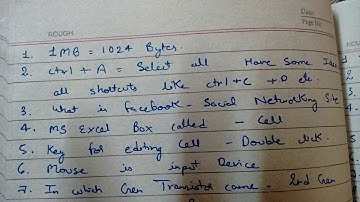 ROUGH
Date:
Page No:
1. 1MB = 1024 Bytes.
2. ctrl + A = Select all Have Some Idea
all shortcuts like ctrl + C + D etc.
3. What is Facebook - Social Networking Site
4. MS Excel Box called - Cell
5. Key for editing Cell - Double click.
6. Mouse is input Device
7. In which Gen Transistor came - 2nd Gen